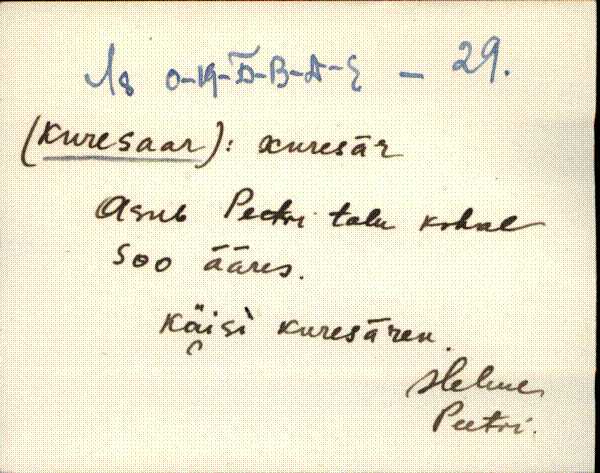 (Kuresaar): kuresār
Asub Peetri talu kohal
soo ääres.
Käisi kuresāren.
Helme
Peetri.